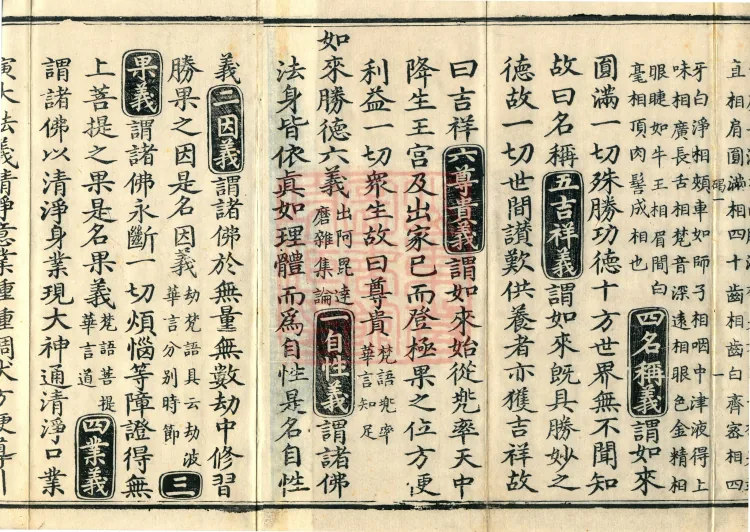 宜相肩圓滿相四十齒相齒白齊密相四
牙白淨相頰車如師子相咽中津液得上
味相廣長舌相梵音深遠相眼色金精相
眼睫如牛王相眉間白
毫相頂肉髻成相也
四名稱義謂如來
圓滿一切殊勝功德十方世界無不聞知
故曰名稱五吉祥義謂如來旣具勝妙之
德故一切世間讃歎供養者亦獲吉祥故
曰吉祥六尊貴義謂如來始從兠率天中
降生王宮及出家巳而登極果之位方便
利益一切衆生故曰尊貴
梵語兠率
華言知足
如來勝德六義
出阿毘達
磨雜集論
一自性義謂諸佛
法身皆依眞如理體而爲自性是名自性
義二因義謂諸佛於無量無數劫中修習
勝果之因是名因義
劫梵語具云劫波
華言分別時節
三
果義謂諸佛永斷一切煩惱等障證得無
上菩提之果是名果義
梵語菩提
華言道
四業義
謂諸佛以清淨身業現大神通清淨口業
大法義清淨意業種種調伏方便